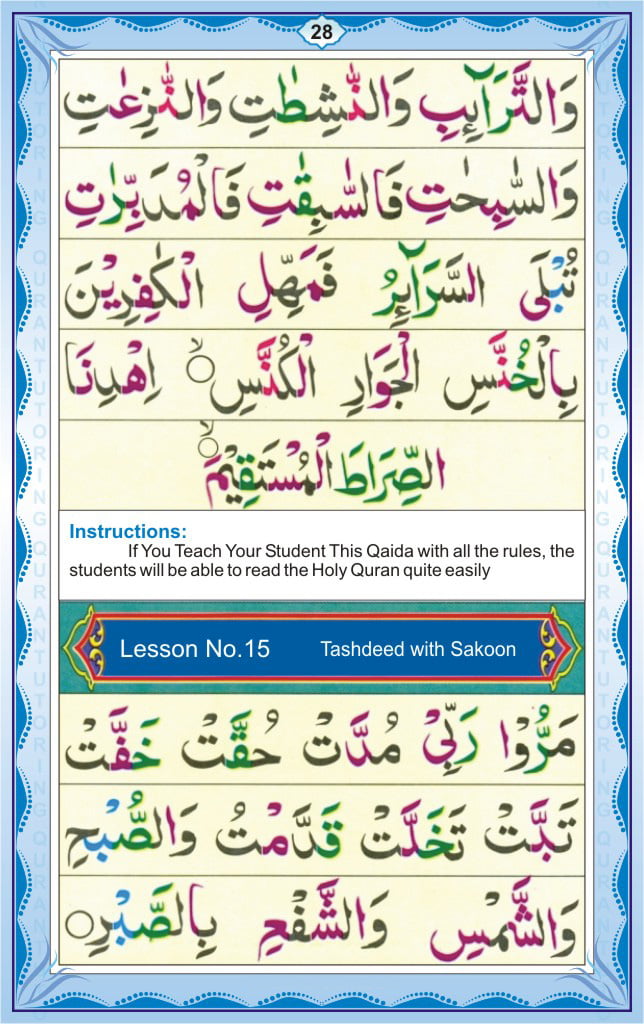 28
وَالتَّرَآئِبِ وَالنّٰشِطٰتِ وَالنّٰزِعٰتِ
وَالسّٰبِحٰتِ فَالسّٰبِقٰتِ فَالْمُدَبِّرٰتِ
تُبْلَى السَّرَآئِرُ فَمَهِّلِ الْكٰفِرِيْنَ
بِالْخُنَّسِ الْجَوَارِ الْكُنَّسِ ۙ اِهْدِنَا
الصِّرَاطَ الْمُسْتَقِيْمَ ۙ
Instructions:
If You Teach Your Student This Qaida with all the rules, the
students will be able to read the Holy Quran quite easily
Lesson No.15 Tashdeed with Sakoon
مَرُّوْا رَبِّىْ مُدَّتْ حُقَّتْ خَفَّتْ
تَبَّتْ تَخَلَّتْ قَدَّمْتُ وَالصُّبْحِ
وَالشَّمْسِ وَالشَّفْعِ بِالصَّبْرِ ○
QURANTUTORING QURANTUTORING